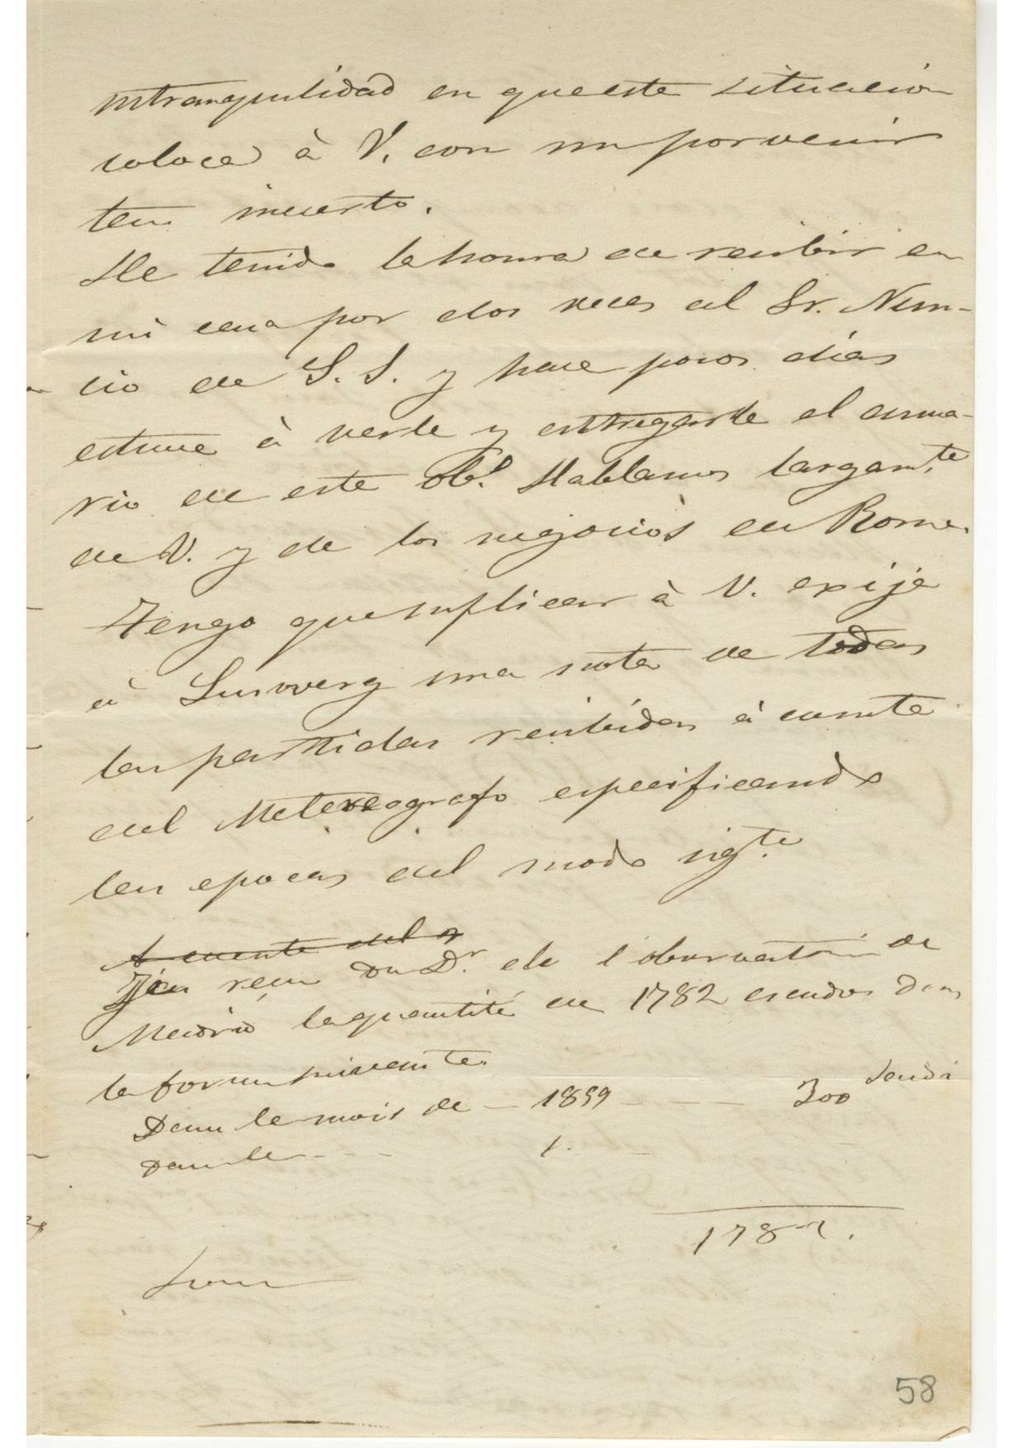 intranquilidad en que esta situación
coloca à V. con un porvenir
tan incierto.
He tenido la honra de recibir en
mi casa por dos veces al Sr. Nun-
cio de S. S. y hace pocos días
estuve à verle y entregarle el anua-
rio de este Obº. Hablamos largamte
de V. y de los negocios de Roma.
Tengo que suplicar à V. exija
à una nota de todas
las partidas recibidas à cuenta
del Metereografo especificando
las epocas del modo sigte
A cuenta del
J'ai reçu du Dr. de l'observatoire de
Madrid la quantité de 1782 escudos dans
la forme suivante
Dans le mois de — 1859 — — 300 Scudi
Dans le — — 1.
1782.
58